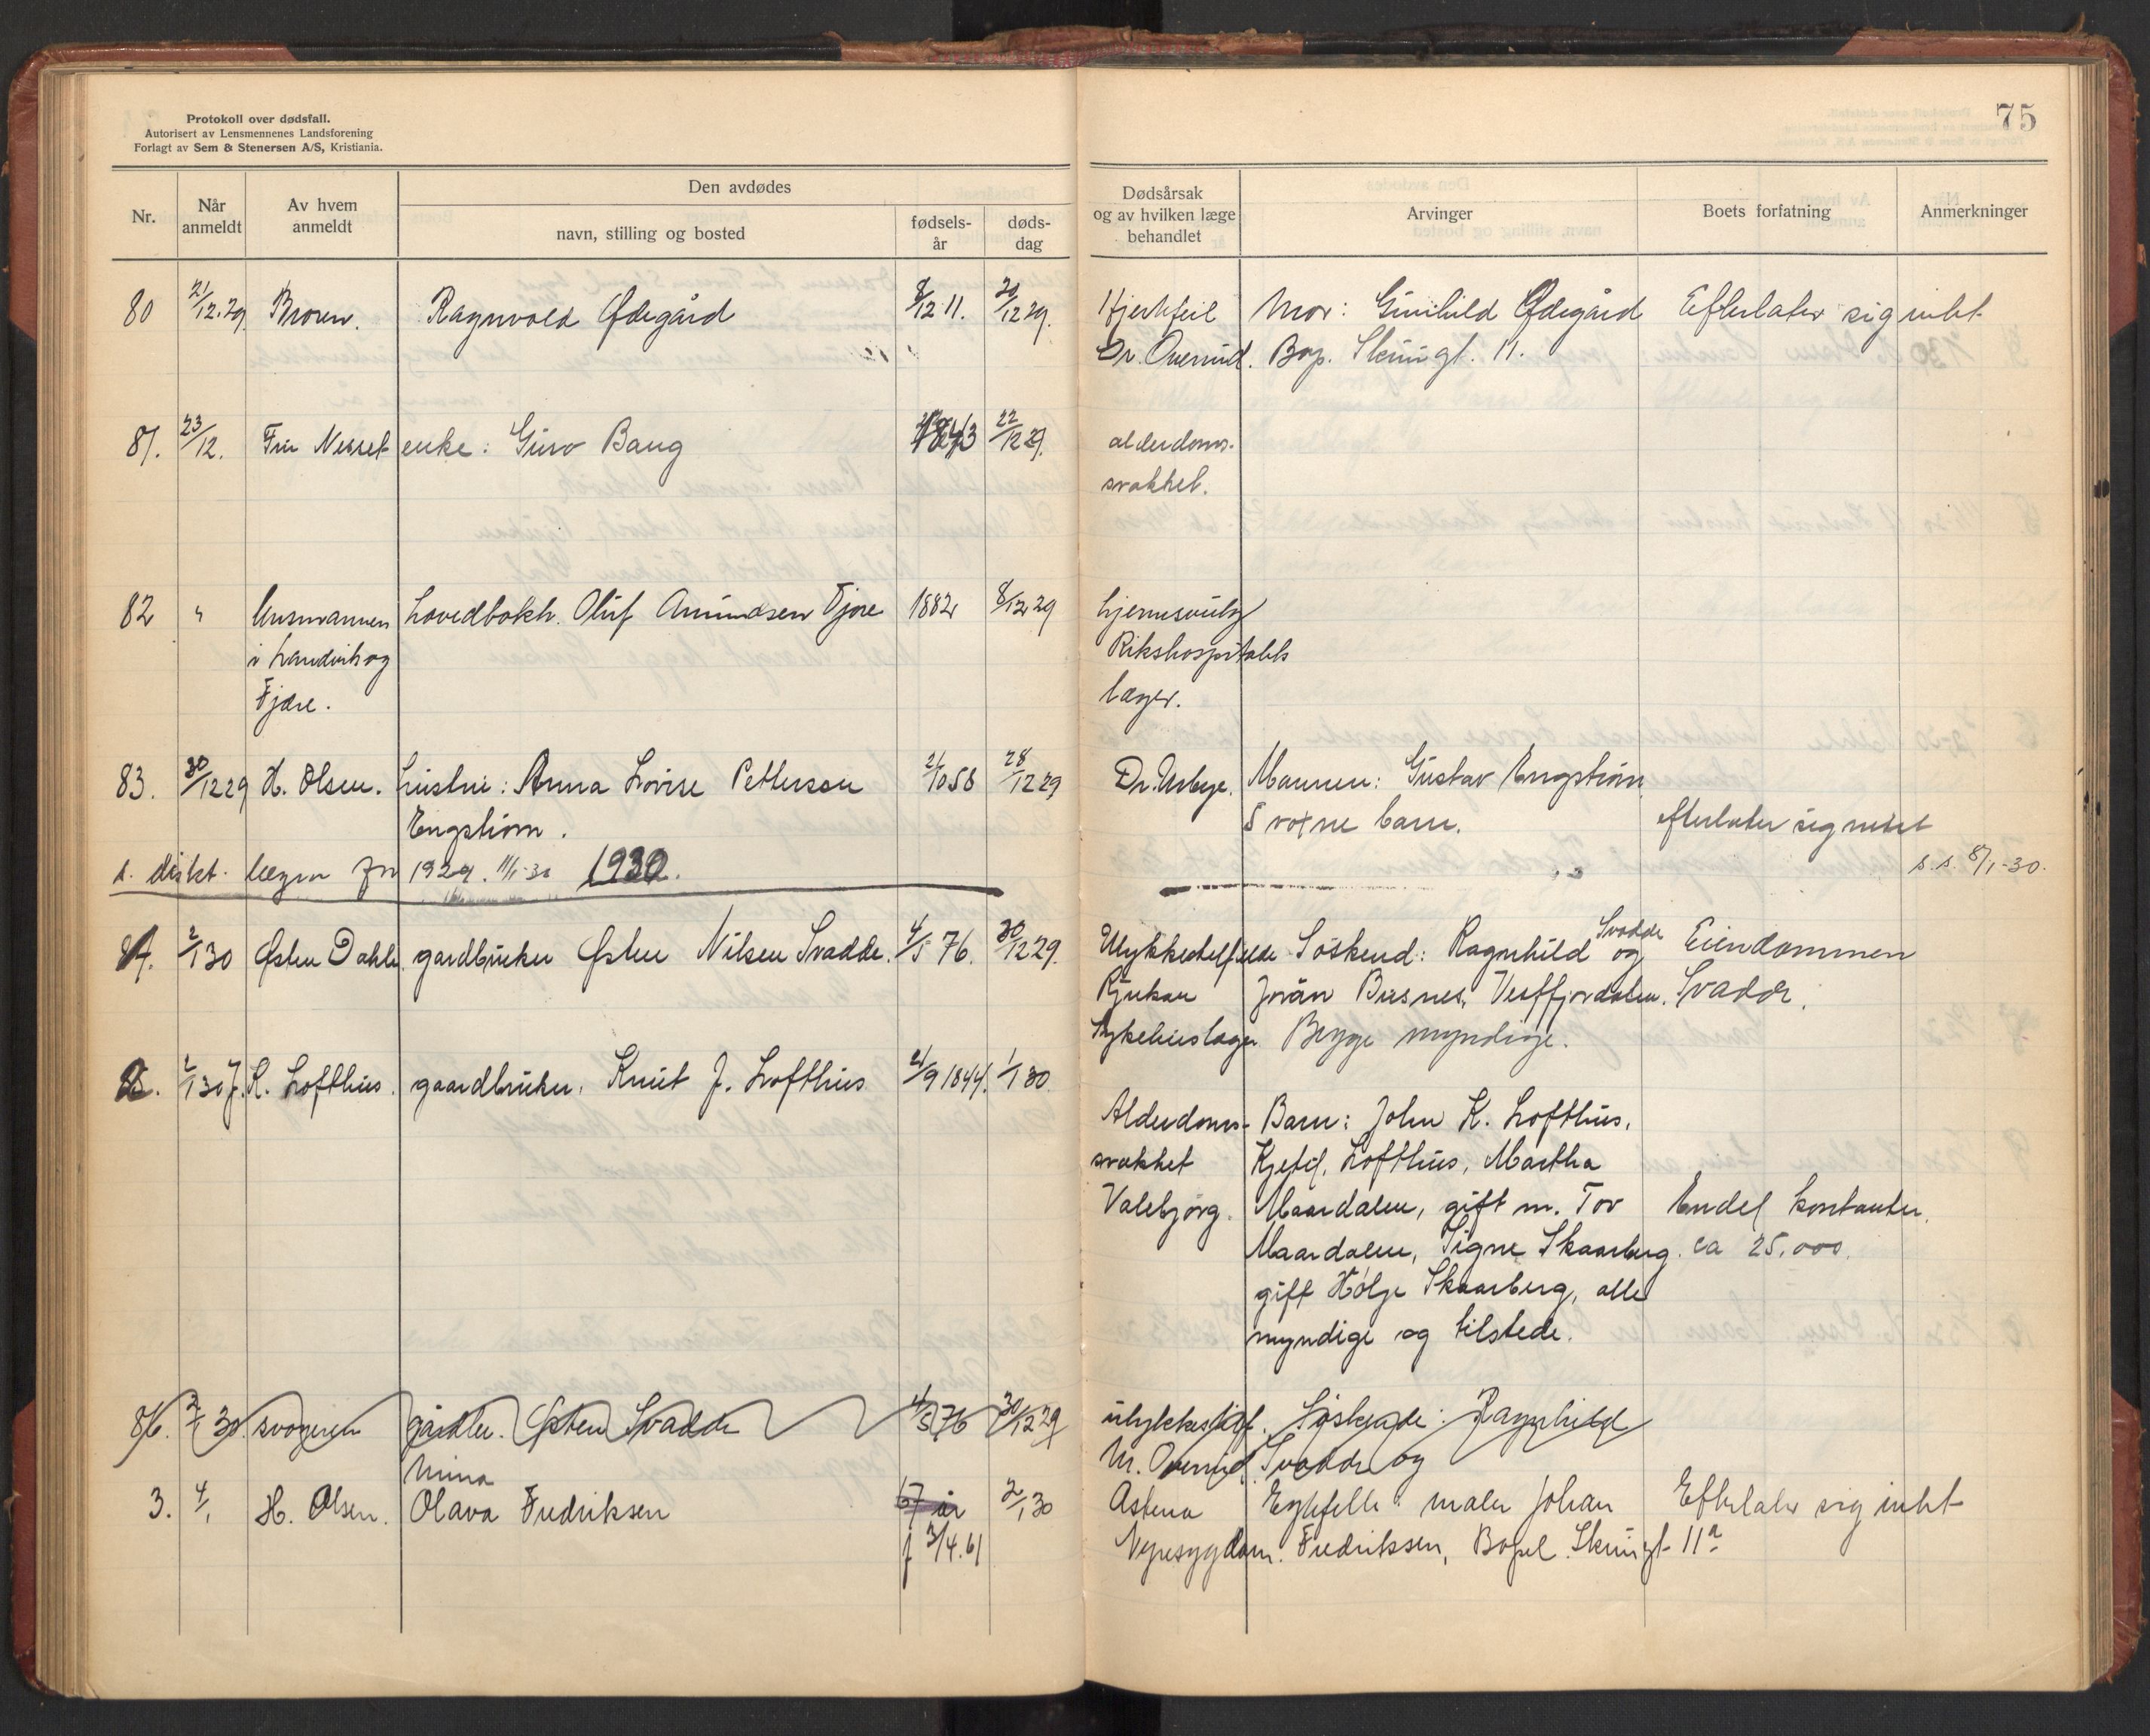 Protokoll over dødsfall.
Autorisert av Lensmennenes Landsforening
Forlagt av Sem & Stenersen A/S, Kristiania.
75
Nr.
Når anmeldt
Av hvem anmeldt
Den avdødes
navn, stilling og bosted
fødsels-år
døds-dag
Dødsårsak og av hvilken læge behandlet
Arvinger
Boets forfatning
Anmerkninger
80 21/12.29 Broren. Ragnvold Ødegård 8/12 11. 20/12 29. Hjertefeil Mor: Gunhild Ødegård Efterlater sig intet
Dr. Overrud. Bop. Skriugt. 11.
81. 23/12. Fru Nesset enke: Guro Baug 1843 22/12 29. alderdoms-
svakhet.
82 " Lensmannen hovedbokh. Oluf Amundsen Fjære 1882 8/12 29 hjernesvulst
i Landvik og Rikshospitalets
Fjære. læger.
83. 30/12 29 H. Olsen. hustru: Anna Lovise Petterson 21/10 58 28/12 29 Dr. Usbye. Mannen: Gustav Engstrøm
Engstrøm. 5 voxne barn. efterlater sig intet
s. distkt. lægen for 1929. 11/1-30 1930. s.s. 8/1-30.
84. 2/1 30 Østen Dahle gardbruker Østen Nilsen Svadde. 4/5 76. 30/12 29. Ulykkestilfelde Søskend: Ragnhild Svadde og Eiendommen
Rjukan Jorån Busnes, Vestfjordalen. Svadde.
Sykehuslæge Begge myndige.
85. 2/1 30 J. K. Lofthus. gaardbruker, Knut J. Lofthus 21/9 1844. 1/1 30.
Alderdoms- Barn: John K. Lofthus,
svakhet Kjetil Lofthus, Martha
Valebjørg. Maardalen, gift m. Tov Endel kontanter.
Maardalen, Signe Skaarberg. ca 25.000.
gift Hølje Skaarberg, alle
myndige og tilstede.
86. 2/1 30. svogeren gårdbr. Østen Svadde 4/5 76 30/12 29 ulykkestilf. Søskende: Ragnhild
Overrud. Svadde og
3. 4/1 H. Olsen. Mina Olava Fredriksen 67 år 2/1 30 Astma Ektefelle: maler Johan Efterlater sig intet
f 3/4.61 Nyresygdom. Fredriksen, Bopel Skriugt 11a